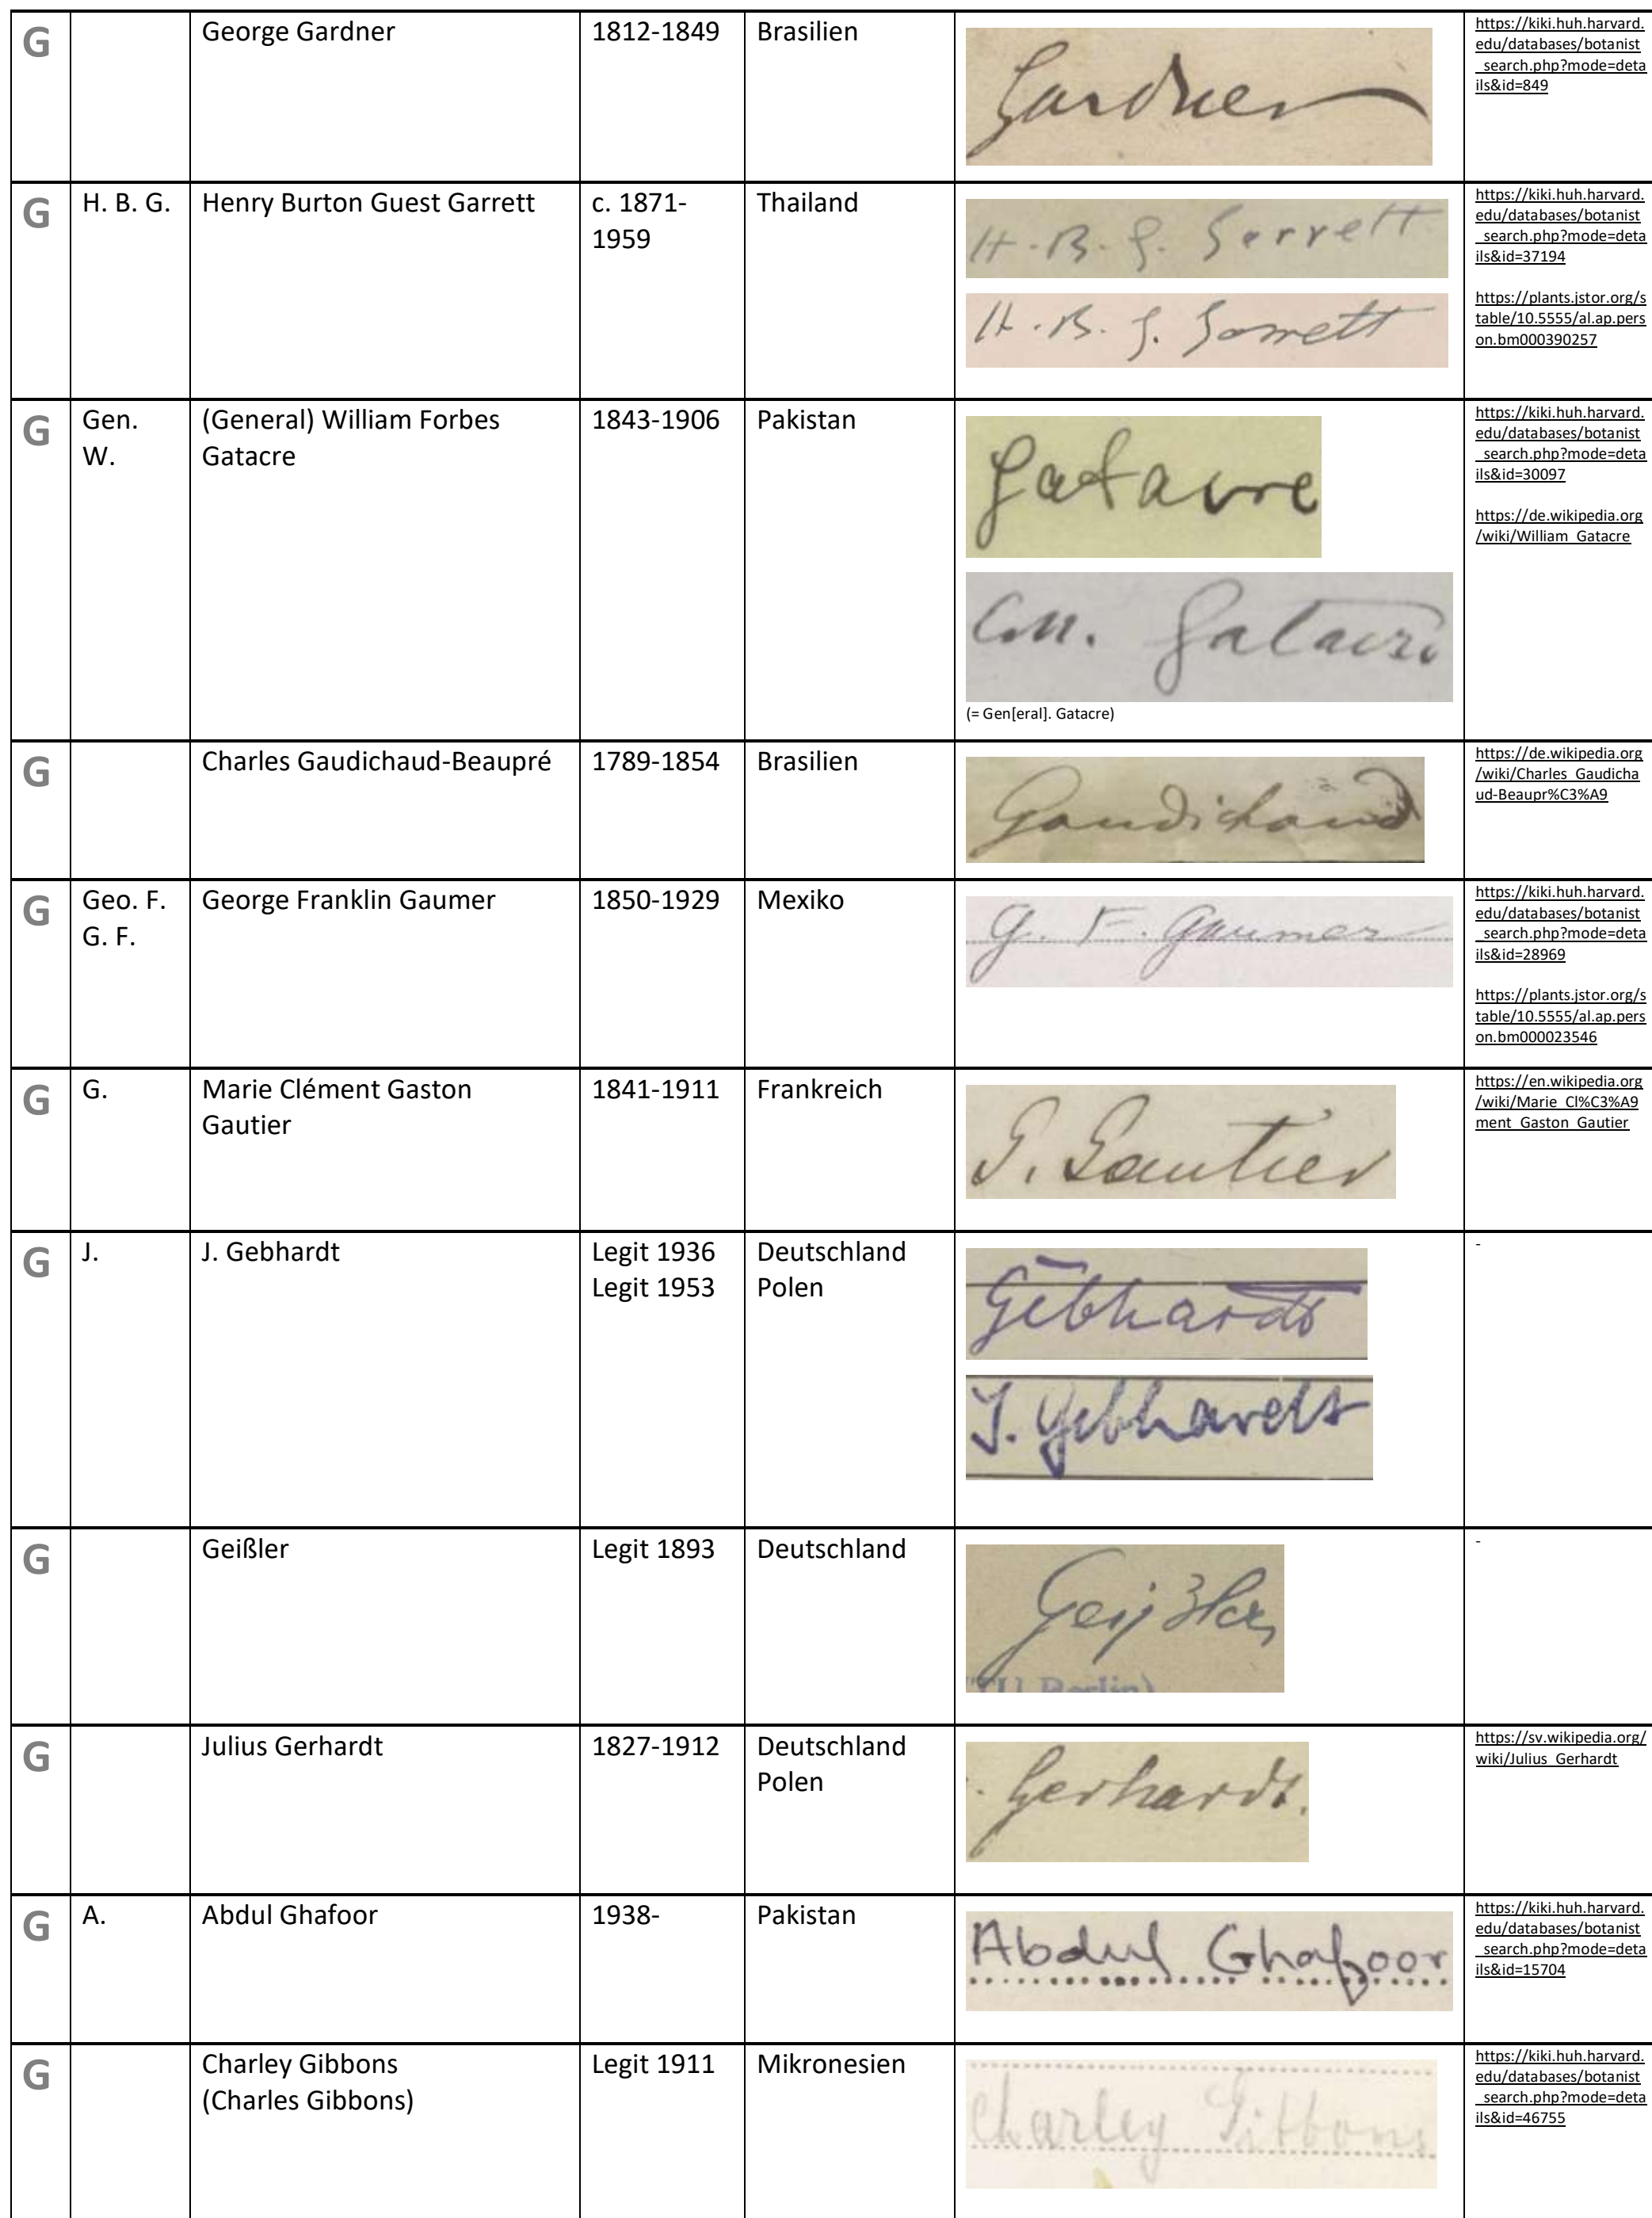 G
George Gardner
1812-1849
Brasilien
Gardner
https://kiki.huh.harvard.
edu/databases/botanist
_search.php?mode=deta
ils&id=849
G
H. B. G.
Henry Burton Guest Garrett
c. 1871-
1959
Thailand
H. B. G. Garrett
H. B. G. Garrett
https://kiki.huh.harvard.
edu/databases/botanist
_search.php?mode=deta
ils&id=37194
https://plants.jstor.org/s
table/10.5555/al.ap.pers
on.bm000390257
G
Gen.
W.
(General) William Forbes
Gatacre
1843-1906
Pakistan
Gatacre
Gen. Gatacre
(= Gen[eral]. Gatacre)
https://kiki.huh.harvard.
edu/databases/botanist
_search.php?mode=deta
ils&id=30097
https://de.wikipedia.org
/wiki/William_Gatacre
G
Charles Gaudichaud-Beaupré
1789-1854
Brasilien
Gaudichaud
https://de.wikipedia.org
/wiki/Charles_Gaudicha
ud-Beaupr%C3%A9
G
Geo. F.
G. F.
George Franklin Gaumer
1850-1929
Mexiko
G. F. Gaumer
https://kiki.huh.harvard.
edu/databases/botanist
_search.php?mode=deta
ils&id=28969
https://plants.jstor.org/s
table/10.5555/al.ap.pers
on.bm000023546
G
G.
Marie Clément Gaston
Gautier
1841-1911
Frankreich
G. Gautier
https://en.wikipedia.org
/wiki/Marie_Cl%C3%A9
ment_Gaston_Gautier
G
J.
J. Gebhardt
Legit 1936
Legit 1953
Deutschland
Polen
Gebhardt
J. Gebhardt
-
G
Geißler
Legit 1893
Deutschland
Geißler
TU Berlin)
-
G
Julius Gerhardt
1827-1912
Deutschland
Polen
Gerhardt.
https://sv.wikipedia.org/
wiki/Julius_Gerhardt
G
A.
Abdul Ghafoor
1938-
Pakistan
Abdul Ghafoor
https://kiki.huh.harvard.
edu/databases/botanist
_search.php?mode=deta
ils&id=15704
G
Charley Gibbons
(Charles Gibbons)
Legit 1911
Mikronesien
Charley Gibbons
https://kiki.huh.harvard.
edu/databases/botanist
_search.php?mode=deta
ils&id=46755